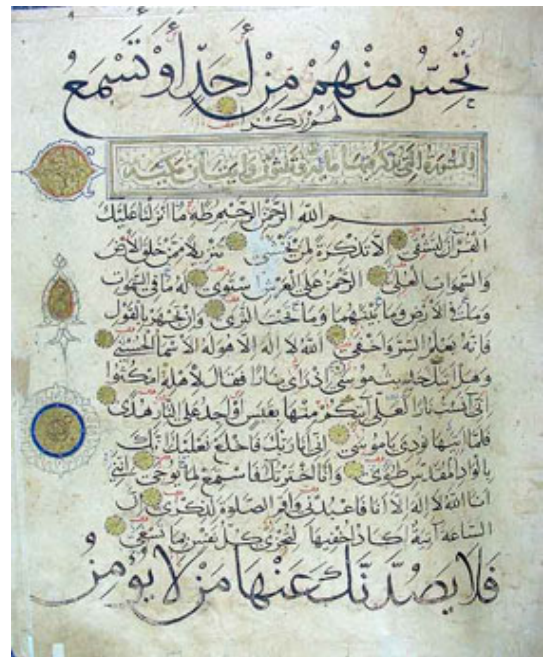 تُحِسُّ مِنْهُمْ مِنْ أَحَدٍ أَوْ تَسْمَعُ
لهم ركزا
السورة التي تذكر فيها مائة وثلثون وايتان مكية
بسم الله الرحمن الرحيم طه ما انزلنا عليك
القرآن لتشقى الا تذكرة لمن يخشى تنزيلا ممن خلق الارض
والسموات العلى الرحمن على العرش استوى له ما في السموات
وما في الارض وما بينهما وما تحت الثرى وان تجهر بالقول
فانه يعلم السر واخفى الله لا اله الا هو له الاسماء الحسنى
وهل اتاك حديث موسى اذ رأى نارا فقال لاهله امكثوا
اني آنست نارا لعلي آتيكم منها بقبس او اجد على النار هدى
فلما اتاها نودي يا موسى اني انا ربك فاخلع نعليك انك
بالواد المقدس طوى وانا اخترتك فاستمع لما يوحى انني
انا الله لا اله الا انا فاعبدني واقم الصلوة لذكري ان
الساعة آتية اكاد اخفيها لتجزى كل نفس بما تسعى
فَلَا يَصُدَّنَّكَ عَنْهَا مَنْ لَا يُؤْمِنُ